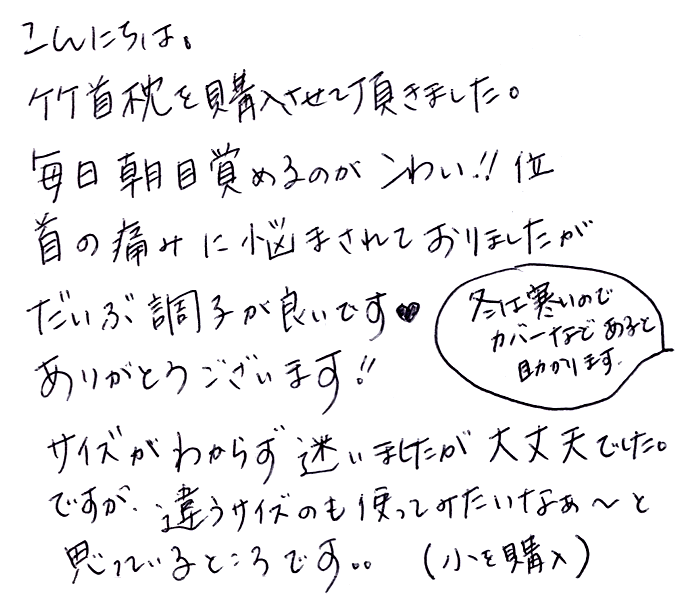 こんにちは。
竹首枕を購入させて頂きました。
毎日朝目覚めるのがこわい!!位
首の痛みに悩まされておりましたが
だいぶ調子が良いです♥
ありがとうございます!!
冬は寒いので
カバーなどあると
助かります.
サイズがわからず迷いましたが大丈夫でした。
ですが、違うサイズのも使ってみたいなぁ～と
思っているところです。。(小を購入)